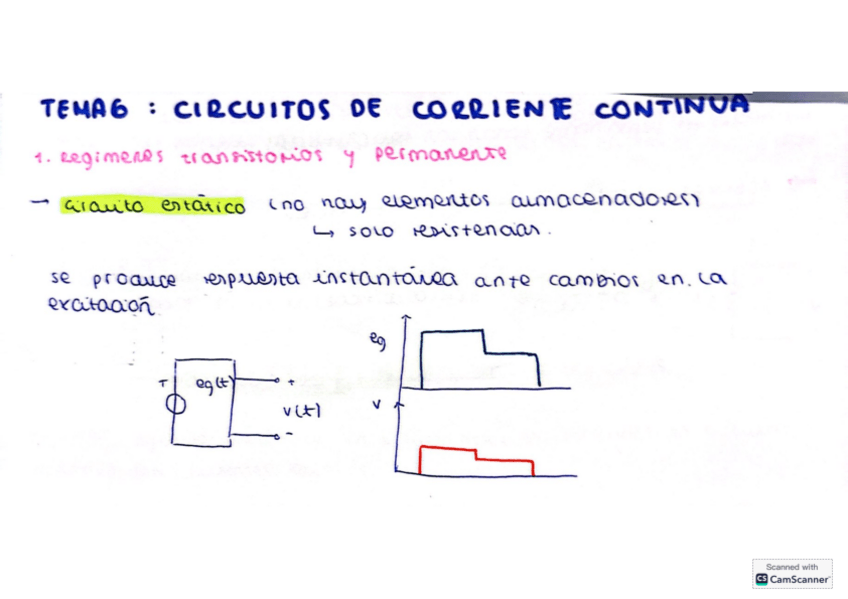 TEMA6 : CIRCUITOS DE CORRIENTE CONTINUA
1. Regimenes transistorios y permanente
→ circuito estático (no hay elementos almacenadores)
↳ solo resistencias.
se produce respuesta instantánea ante cambios en. la
excitación
eg
+ eg(t) +
v(t)
-
v
Scanned with
CS CamScanner